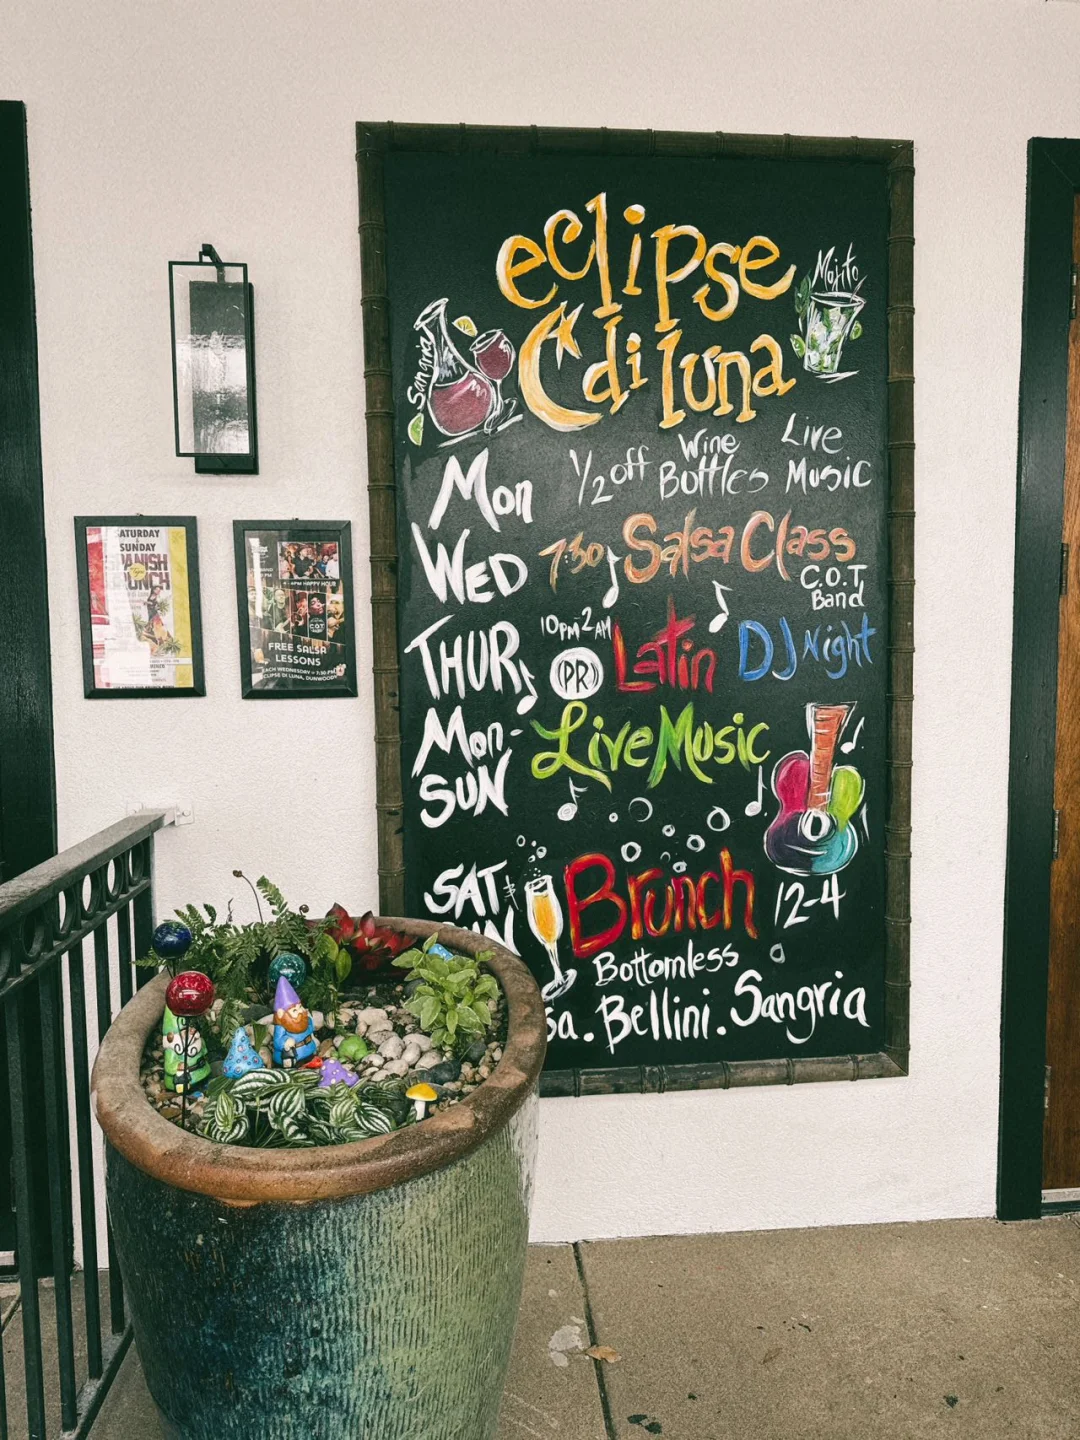 eclipse
di luna
Mojito
Sangria
Mon 1/2 off Wine Bottles Live Music
WED 7:30 Salsa Class
C.O.T. Band
THUR 10PM-2AM (PR) Latin DJ Night
Mon-SUN Live Music
SAT & Brunch 12-4
Bottomless
Bellini. Sangria
SATURDAY
SUNDAY
SPANISH
BRUNCH
HAPPY HOUR
C.O.T
FREE SALSA
LESSONS
EACH WEDNESDAY 7:30 PM
ECLIPSE DI LUNA, DUNWOODY